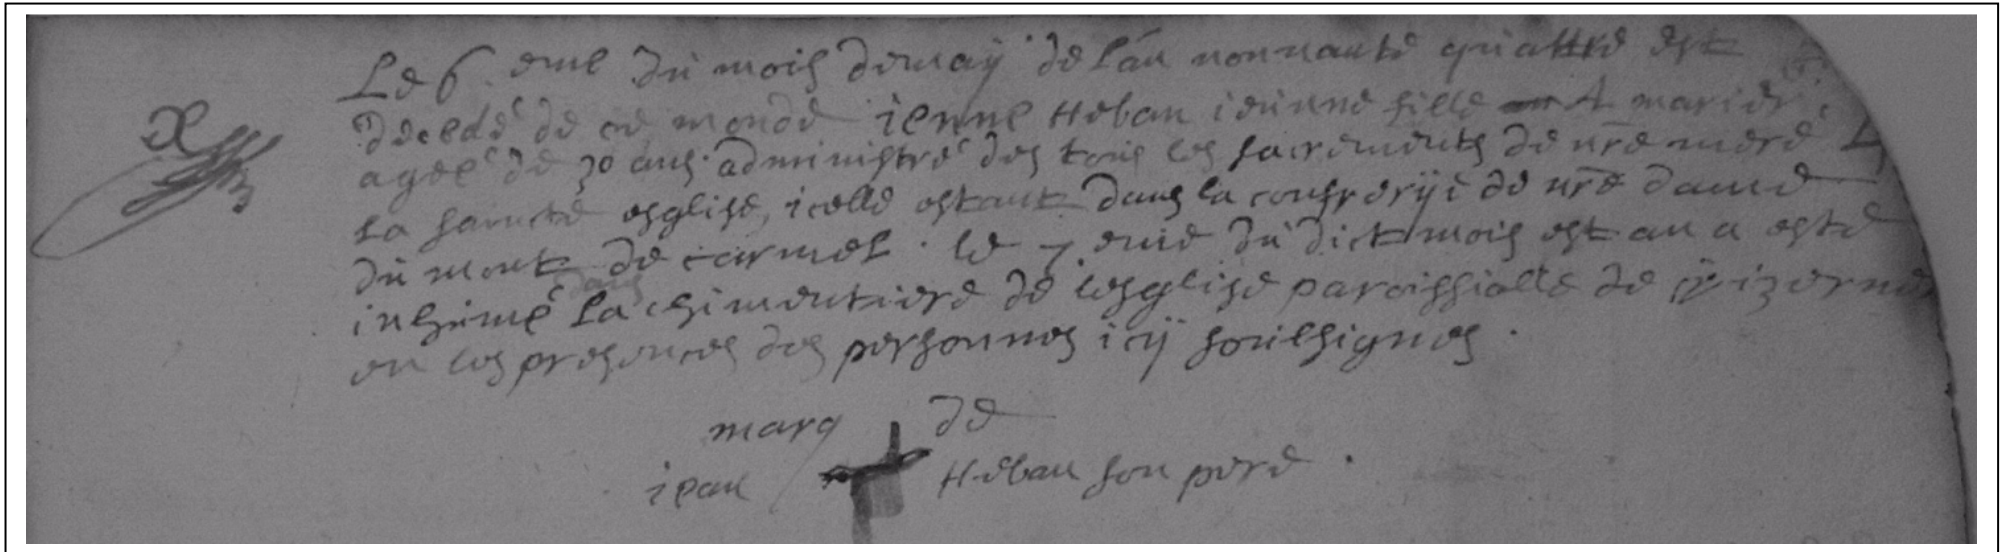 Le 6 eme du mois de maÿ de lan nonnante quattre est
decedé de ce monde ienne Heban ieunne fille A marier
ageé de 30 ans administré des tous les sacrements de nre mere
La saincte esglise, icelle estant dans la confrerÿe de nre dame
du mont de carmel . le 7 eme du dict mois est an a esté
inhumé dans La chimentiere de lesglise paroissialle de wizerne
en les presences des personnes icÿ soubsignes .
marq de
iean Heban son pere .